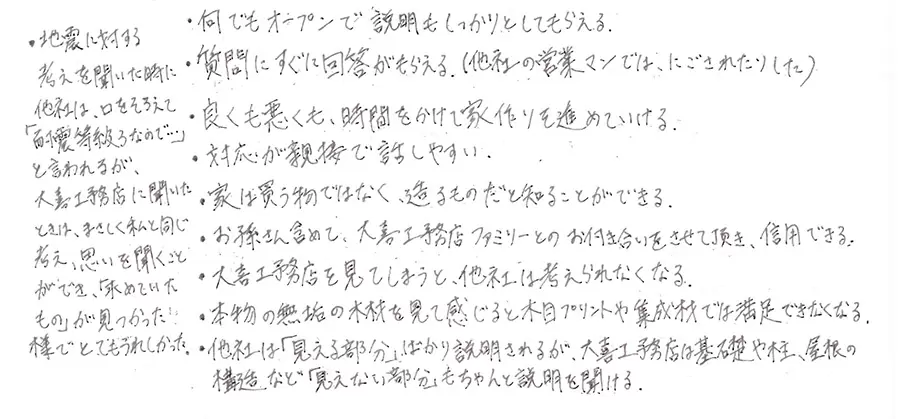 ・地震に対する
考えを聞いた時に
他社は、口をそろえて
「耐震等級3なので…」
と言われるが、
大喜工務店に聞いた
ときは、まさしく私と同じ
考え、思いを聞くこと
ができ、「求めていた
もの」が見つかった!!
様でとてもうれしかった
・何でもオープンで説明もしっかりとしてもらえる.
・質問にすぐに回答がもらえる.(他社の営業マンでは、にごされたりした)
・良くも悪くも、時間をかけて家作りを進めていける.
・対応が親接で話しやすい.
・家は買う物ではなく、造るものだと知ることができる.
・お孫さん含めて、大喜工務店ファミリーとのお付き合いをさせて頂き、信用できる.
・大喜工務店を見てしまうと、他社は考えられなくなる.
・本物の無垢の木材を見て感じると木目プリントや集成材では満足できなくなる.
・他社は「見える部分」ばかり説明されるが、大喜工務店は基礎や柱、屋根の
構造など「見えない部分」もちゃんと説明を聞ける.